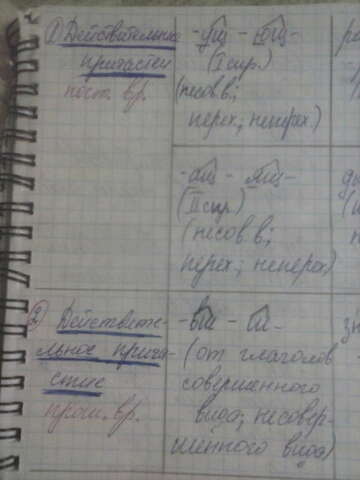 1) Действительное
причастие
наст. вр.
-ущ- -ющ-
(I спр.)
(несов в;
перех; неперех)
-ащ- -ящ-
(II спр.)
(несов в;
перех; неперех)
2) Действите-
льное прича-
стие
прош. вр.
-вш- -ш-
(от глаголов
совершенного
вида; несовер-
шенного вида)